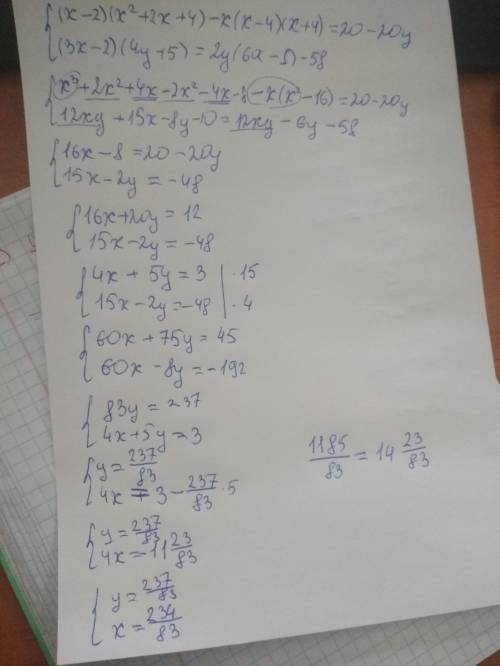 (x-2)(x²+2x+4)-x(x-4)(x+4)=20-20y
(3x-2)(4y+5)=2y(6x-1)-58
x³+2x²+4x-2x²-4x-8-x(x²-16)=20-20y
12xy+15x-8y-10=12xy-6y-58
16x-8=20-20y
15x-2y=-48
16x+20y=12
15x-2y=-48
4x+5y=3 | ·15
15x-2y=-48 | ·4
60x+75y=45
60x-8y=-192
83y=237
4x+5y=3
y=237/83
4x=3-237/83·5
1185/83=14 23/83
y=237/83
4x=11 23/83
y=237/83
x=234/83